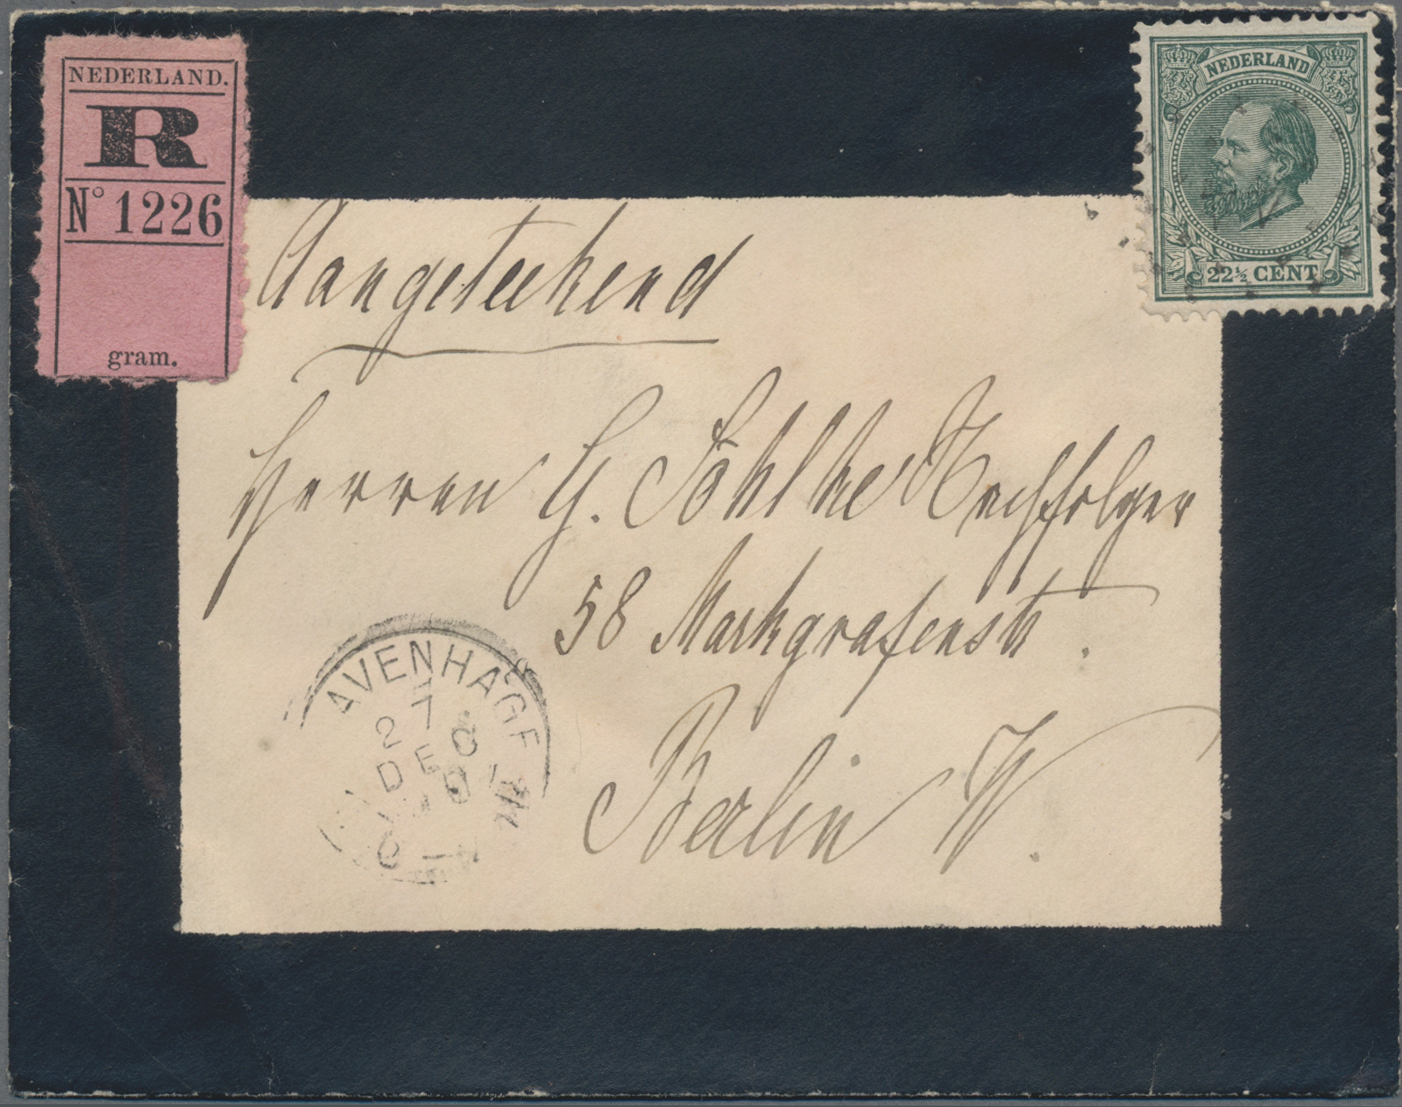 NEDERLAND.
R
Nº 1226
gram.
NEDERLAND
22½ CENT
Aangeteekend
Herren G. Söhlke Nachfolger
58 Markgrafenstr.
Berlin W.
AVENHAGE
27
DEC